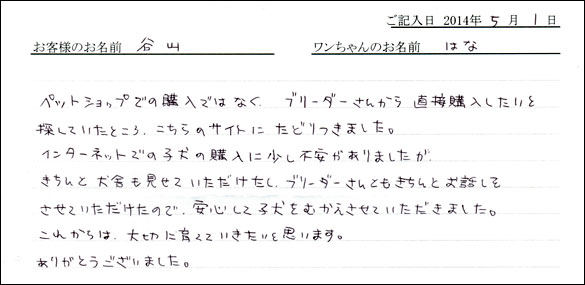 ご記入日 2014年 5 月 1 日
お客様のお名前 谷山 ワンちゃんのお名前 はな
ペットショップでの購入ではなく、ブリーダーさんから直接購入したいと
探していたところ、こちらのサイトにたどりつきました。
インターネットでの子犬の購入に少し不安がありましたが、
きちんと犬舎も見せていただけたし、ブリーダーさんともきちんとお話しを
させていただけたので、安心して子犬をむかえさせていただきました。
これからは、大切に育てていきたいと思います。
ありがとうございました。